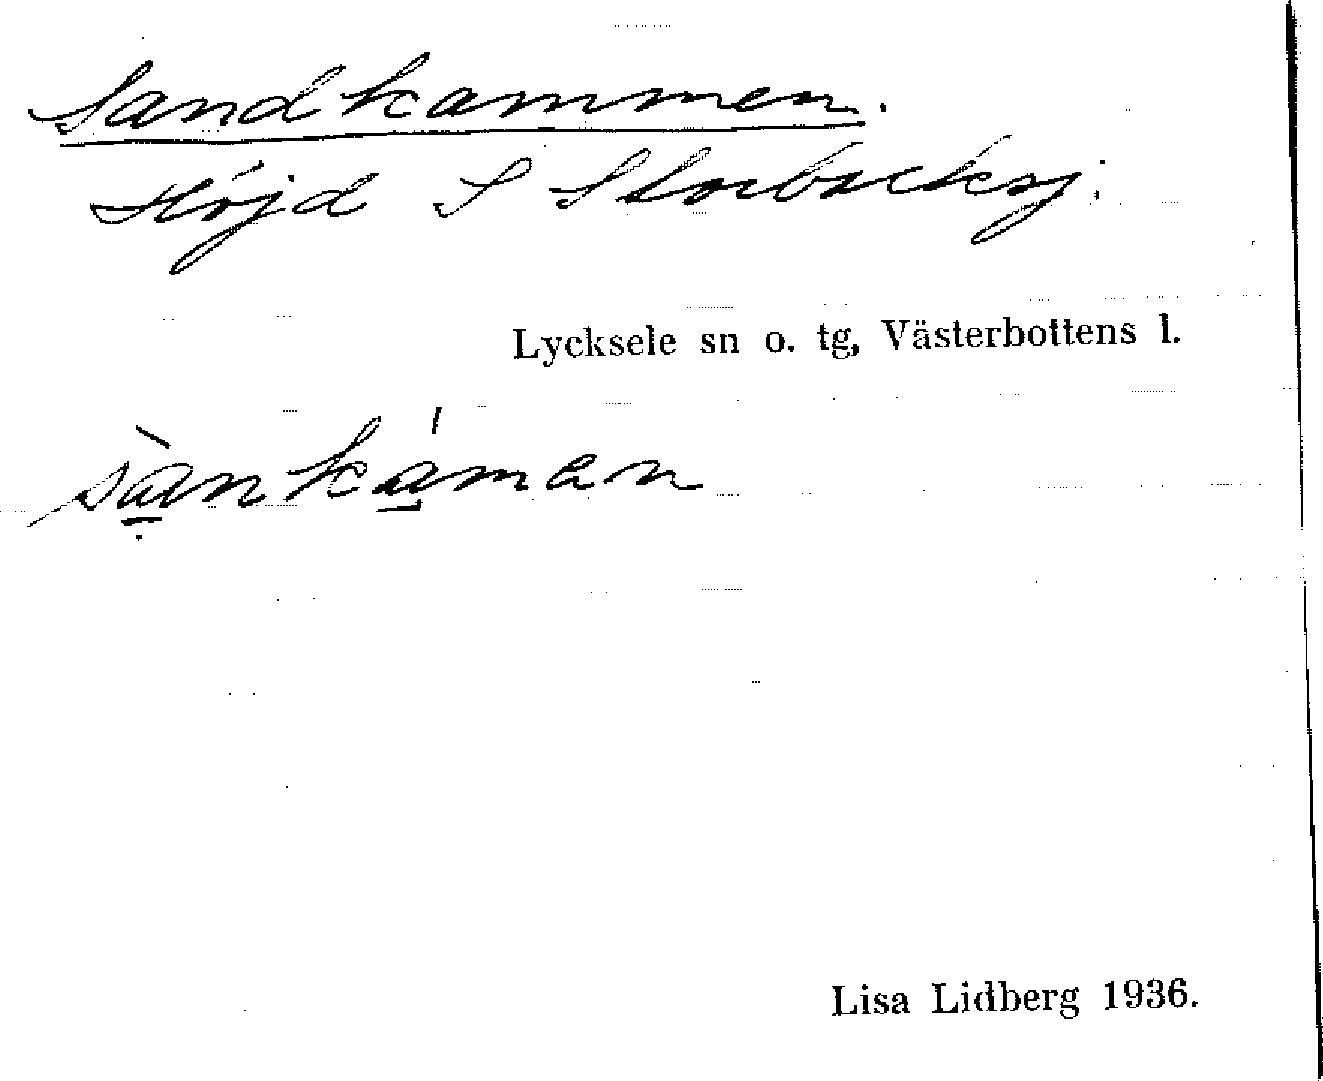 Sandkammen.
Höjd S Storbucksj.
Lycksele sn o. tg, Västerbottens l.
sànkáman
Lisa Lidberg 1936.